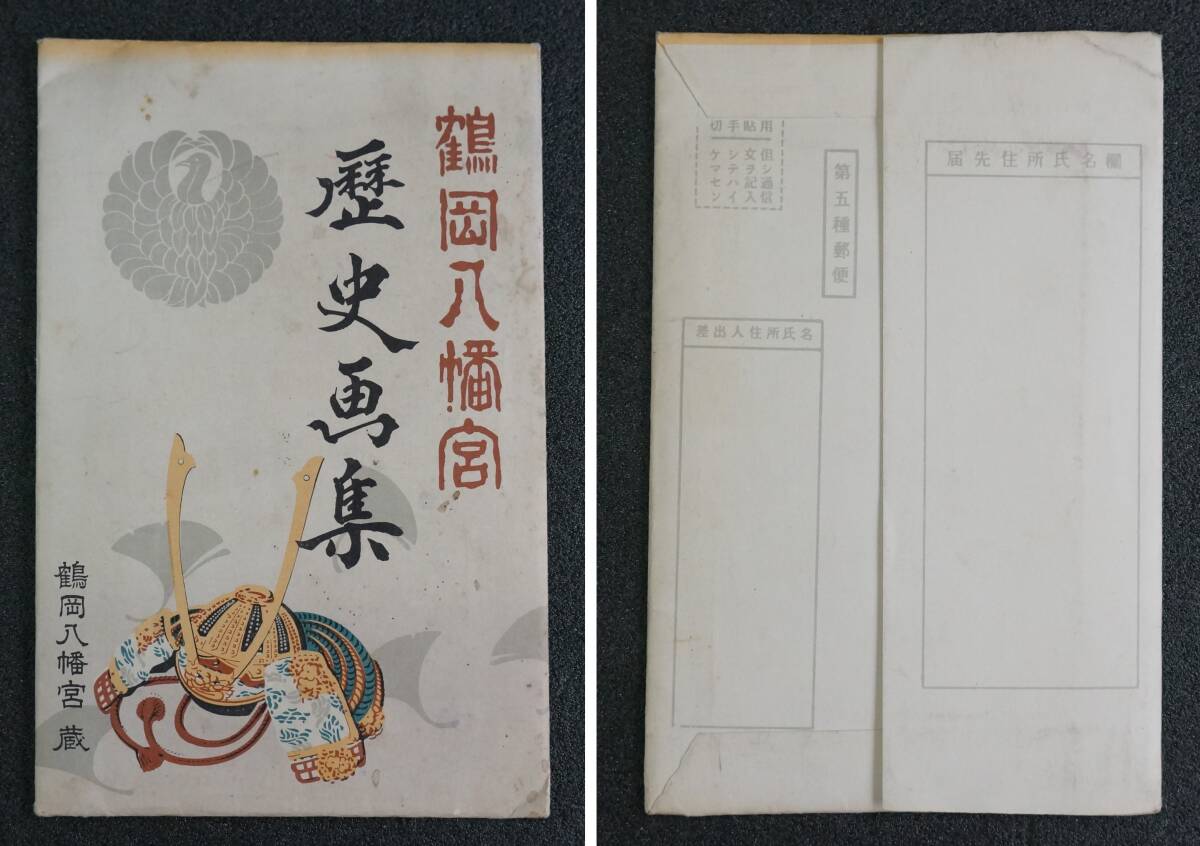 鶴岡八幡宮
歴史画集
鶴岡八幡宮 蔵
届先住所氏名欄
第五種郵便
切手貼用
但シ通信
文ヲ記入
シテハイ
ケマセン
差出人住所氏名